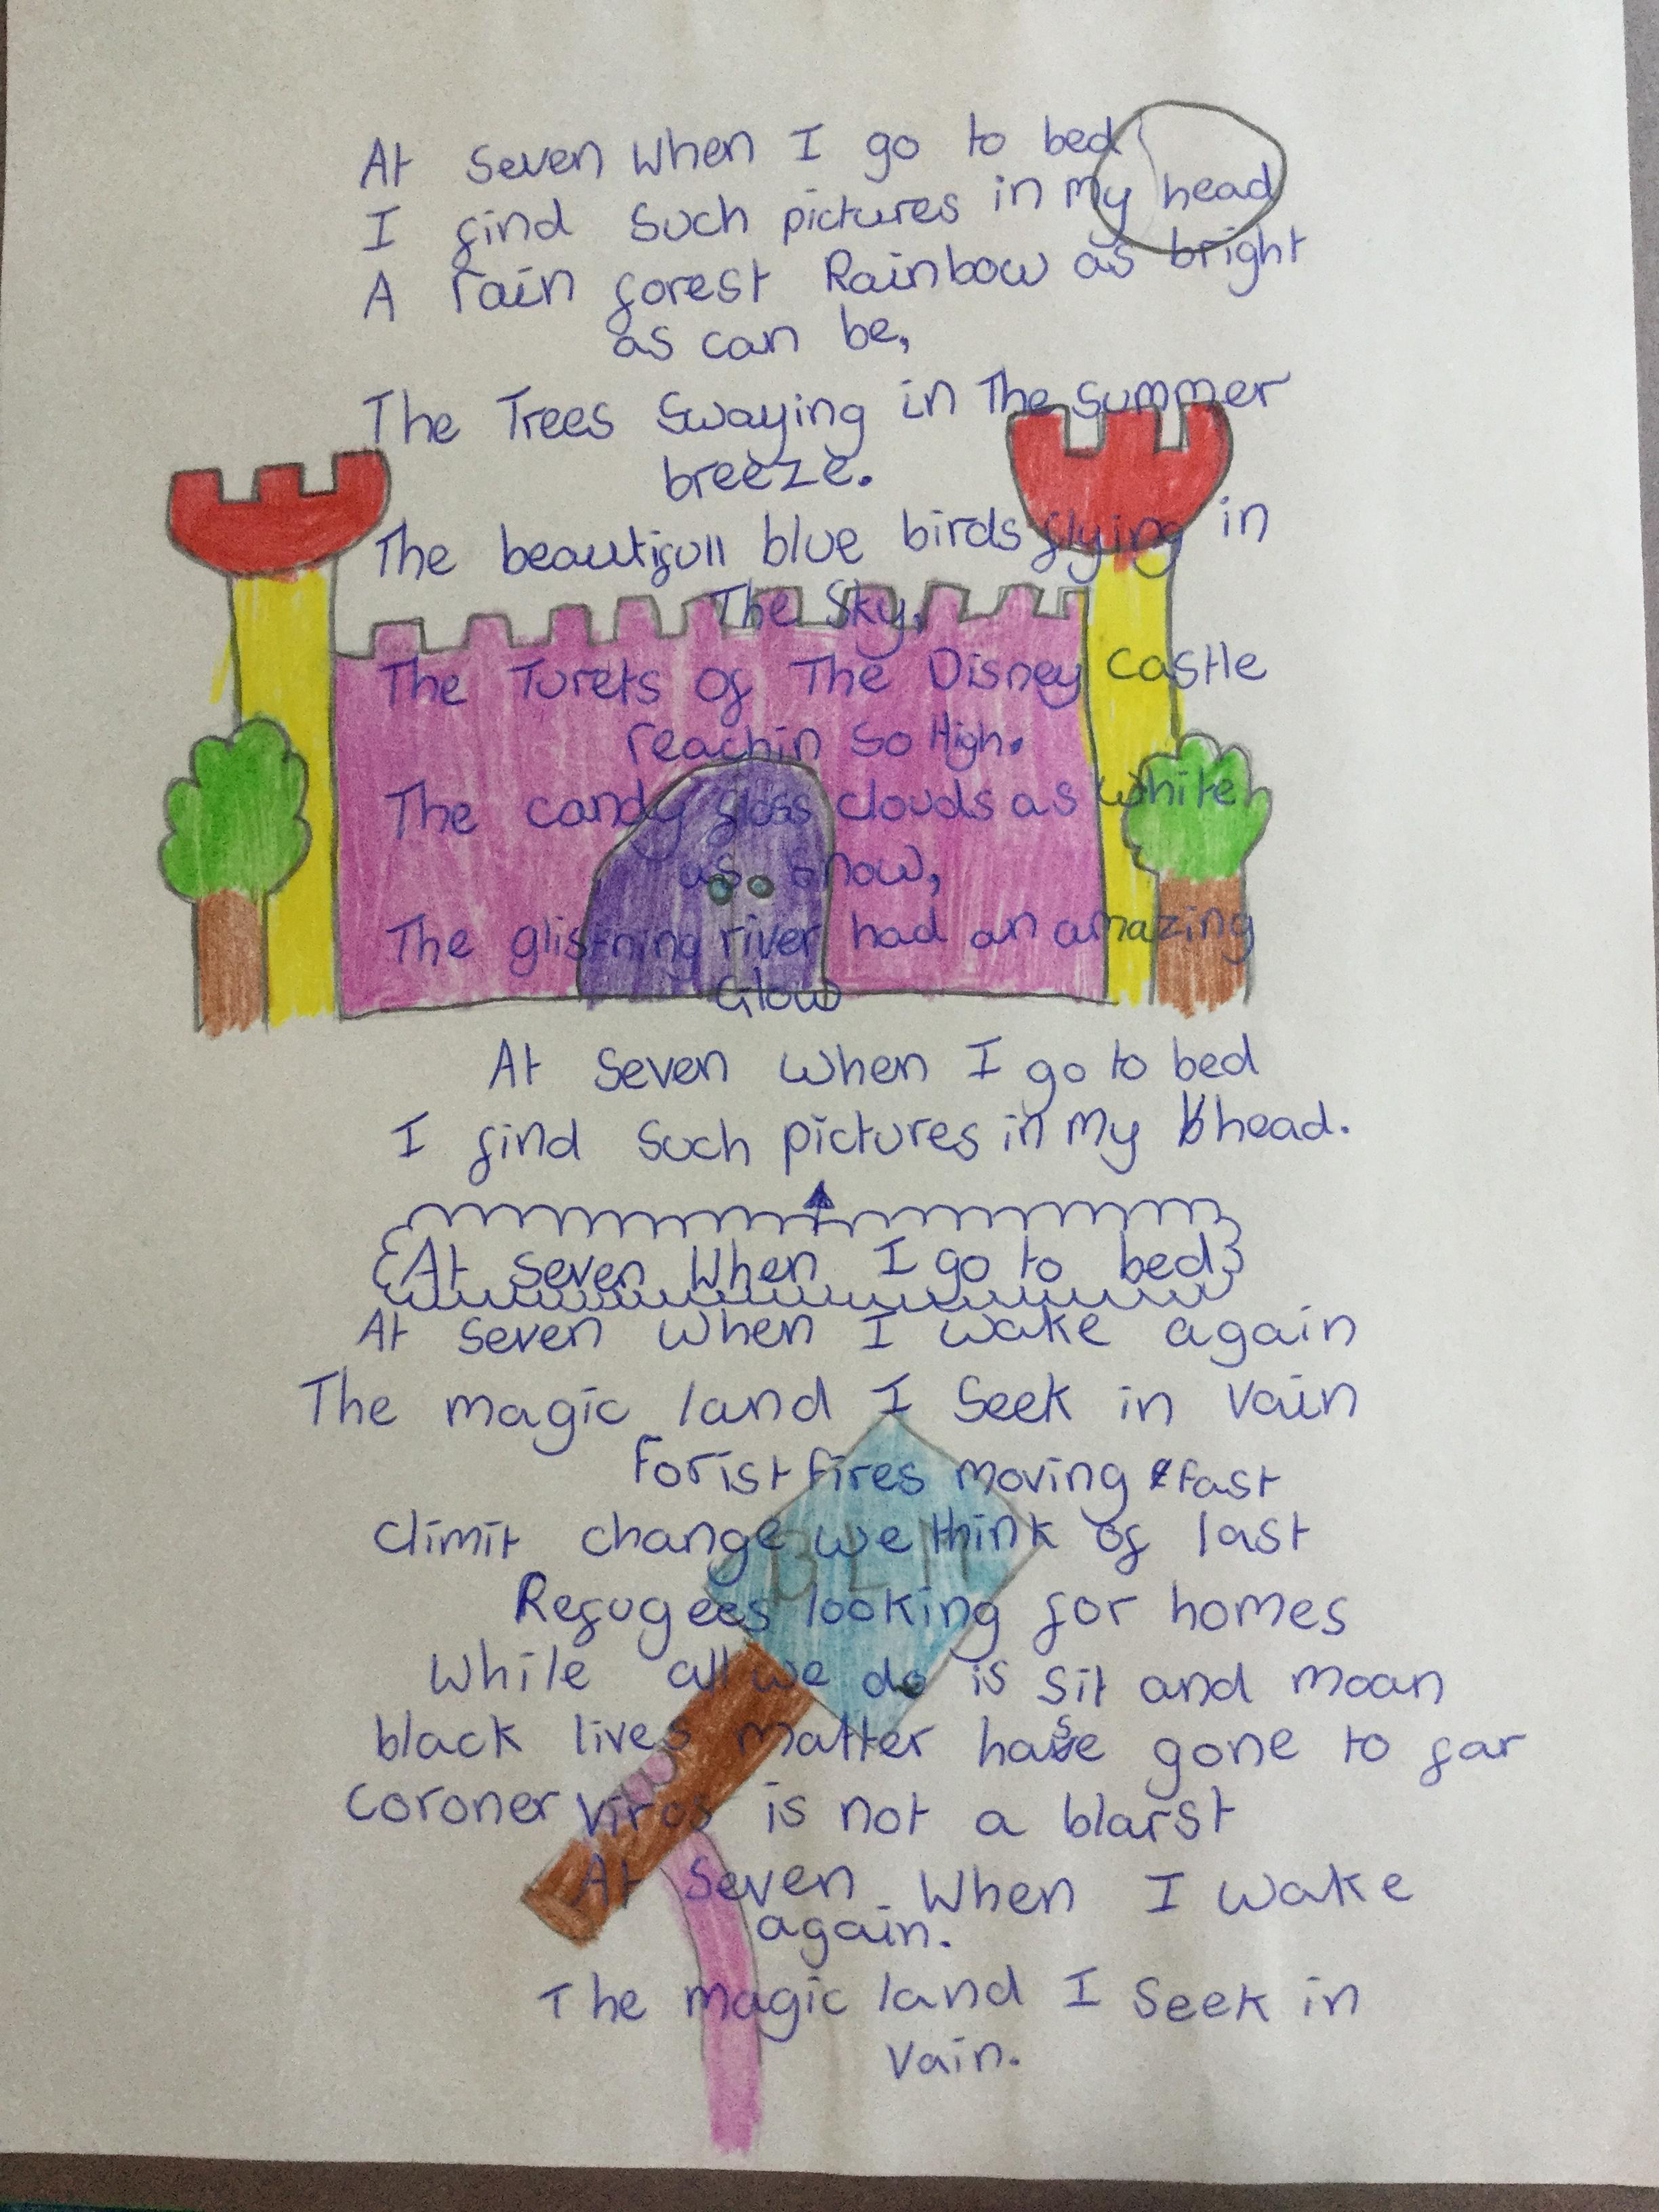 At Seven When I go to bed
I find Such pictures in my head
A rain forest Rainbow as bright
as can be,
The Trees Swaying in The Summer
breeze.
The beautifull blue birds flying in
The Sky.
The Turets of The Disney castle
reachin so High.
The candy floss clouds as white
as snow,
The glistning river had an amazing
Glow
At Seven when I go to bed
I find Such pictures in my head.
At Seven When I go to bed
At Seven when I wake again
The magic land I Seek in vain
Forist fires moving fast
climit change we think of last
BLM
Refugees looking for homes
While all we do is sit and moan
black lives matter has gone to far
coroner viros is not a blarst
At Seven When I wake
again.
The magic land I Seek in
vain.